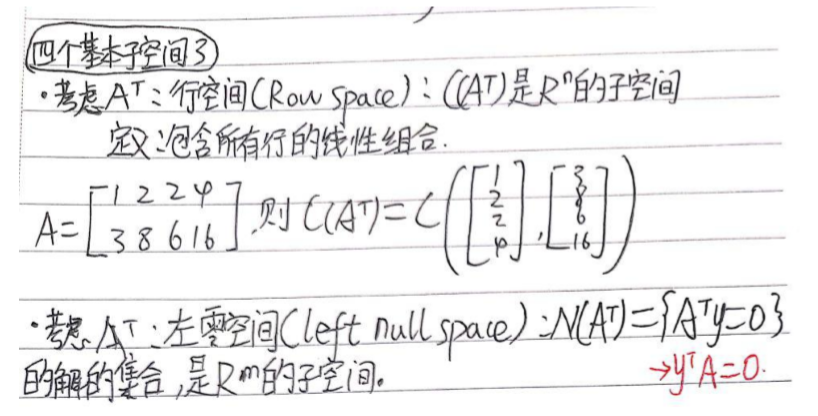 四个基本子空间3
·考虑Aᵀ:行空间(Row space):C(Aᵀ)是Rⁿ的子空间
定义:包含所有行的线性组合.
A=[1 2 2 4; 3 8 6 16],则 C(Aᵀ)=C([1 2 2 4],[3 8 6 16])
·考虑Aᵀ:左零空间(left null space):N(Aᵀ)={Aᵀy=0}
的解的集合,是Rᵐ的子空间。 →yᵀA=0.